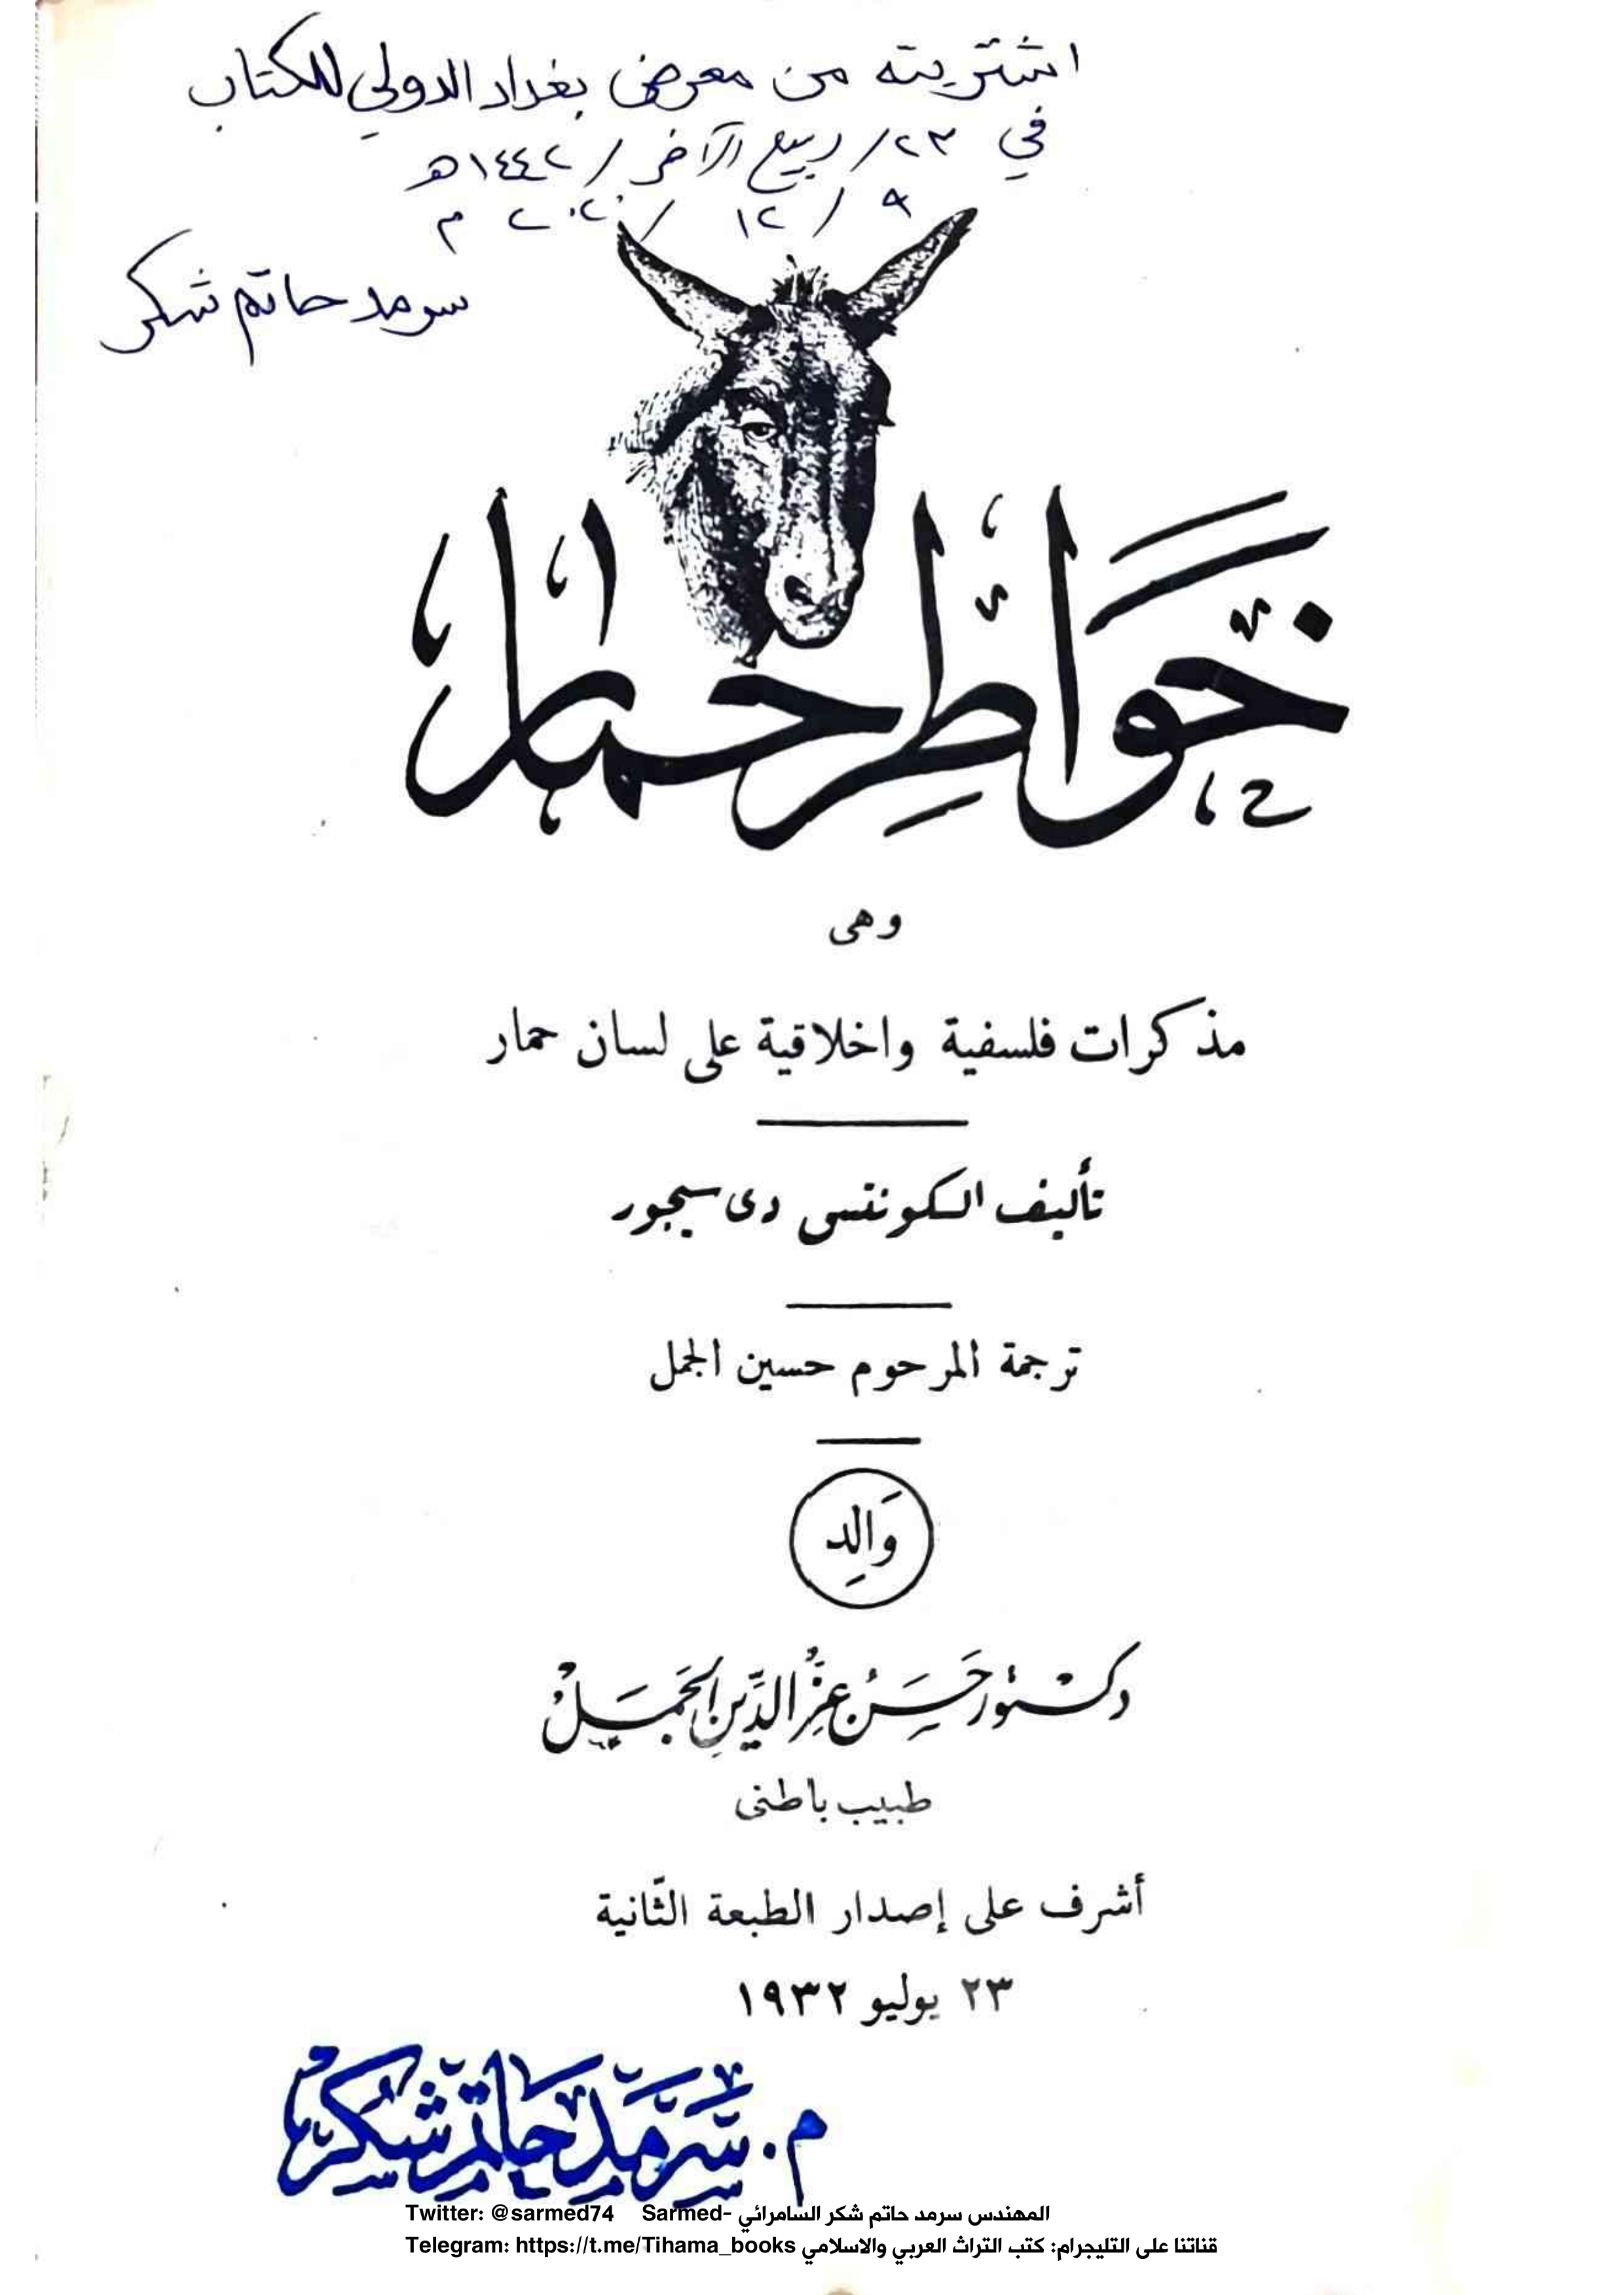 اشتريته من معرض بغداد الدولي للكتاب
في ٢٣/ ربيع الآخر / ١٤٤٢هـ
٩ / ١٢ / ٢٠٢٠ م
سرمد حاتم شكر
خَوَاطِر حمار
وهى
مذكرات فلسفية واخلاقية على لسان حمار
تأليف الكونتس دى سيجور
ترجمة المرحوم حسين الجمل
وَالِد
دكتور حَسَن عِزُّ الدِّينِ الجَمَلْ
طبيب باطنى
أشرف على إصدار الطبعة الثّانية
٢٣ يوليو ١٩٣٢
م. سَرمَد حَاتم شكر
Twitter: @sarmed74 Sarmed- المهندس سرمد حاتم شكر السامرائي
Telegram: https://t.me/Tihama_books قناتنا على التليجرام: كتب التراث العربي والاسلامي